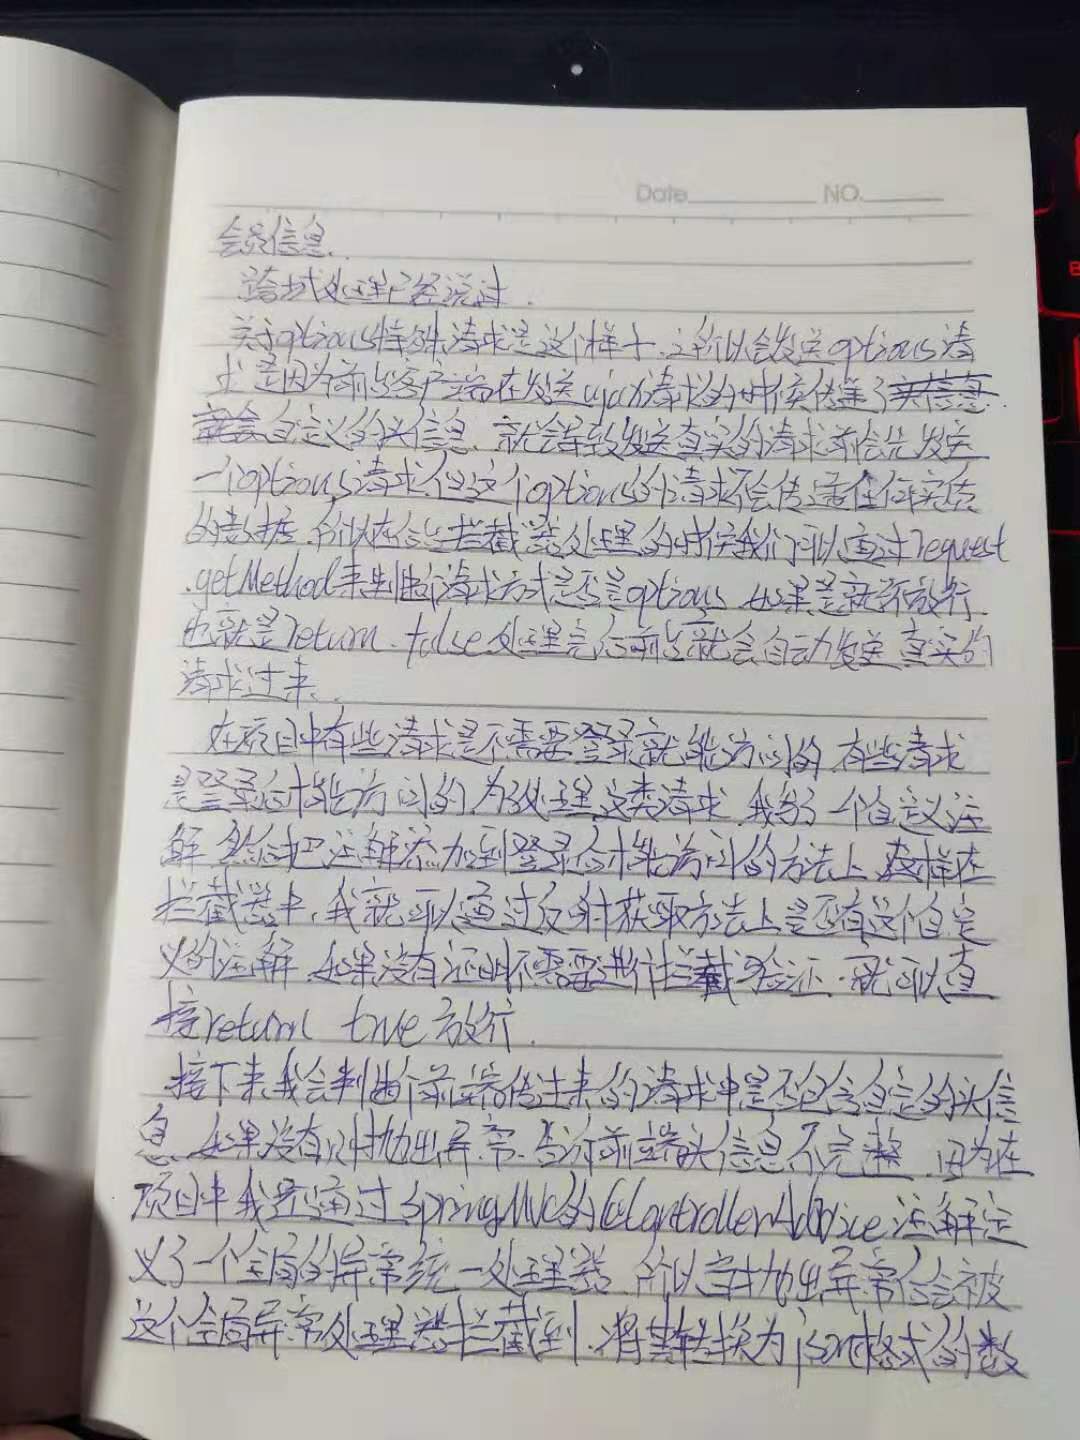 Date NO.
会员信息.
跨域处理已经说过.
关于options特殊请求是这个样子.之所以会发送options请
求是因为前台客户端在发送ajax请求的时候传递了头信息
就会自定义的头信息,就会导致发送真实的请求前会先发送
一个options请求,但这个options的请求不会传递任何实质
的数据,所以在后台拦截器处理的时候我们可以通过request
.getMethod来判断请求方式是否是options,如果是就不放行
也就是return false处理完后前台就会自动发送真实的
请求过来.
在项目中有些请求是不需要登录就能访问的,有些请求
是登录后才能访问的,为了处理这类请求,我 了一个自定义注
解,然后把注解添加到登录后才能访问的方法上,这样在
拦截器中,我就可以通过反射获取方法上是否有这个自定
义的注解,如果没有证明不需要进行拦截验证.就可以直
接return true放行.
接下来我会判断前端传过来的请求中是否包含自定的头信
息,如果没有则抛出异常.告诉前端头信息不完整,因为在
项目中我是通过SpringMVC的 ControllerAdvice注解定
义了一个全局的异常统一处理器,所以当抛出异常后会被
这个全局异常处理器拦截到.将其转换为json格式的数